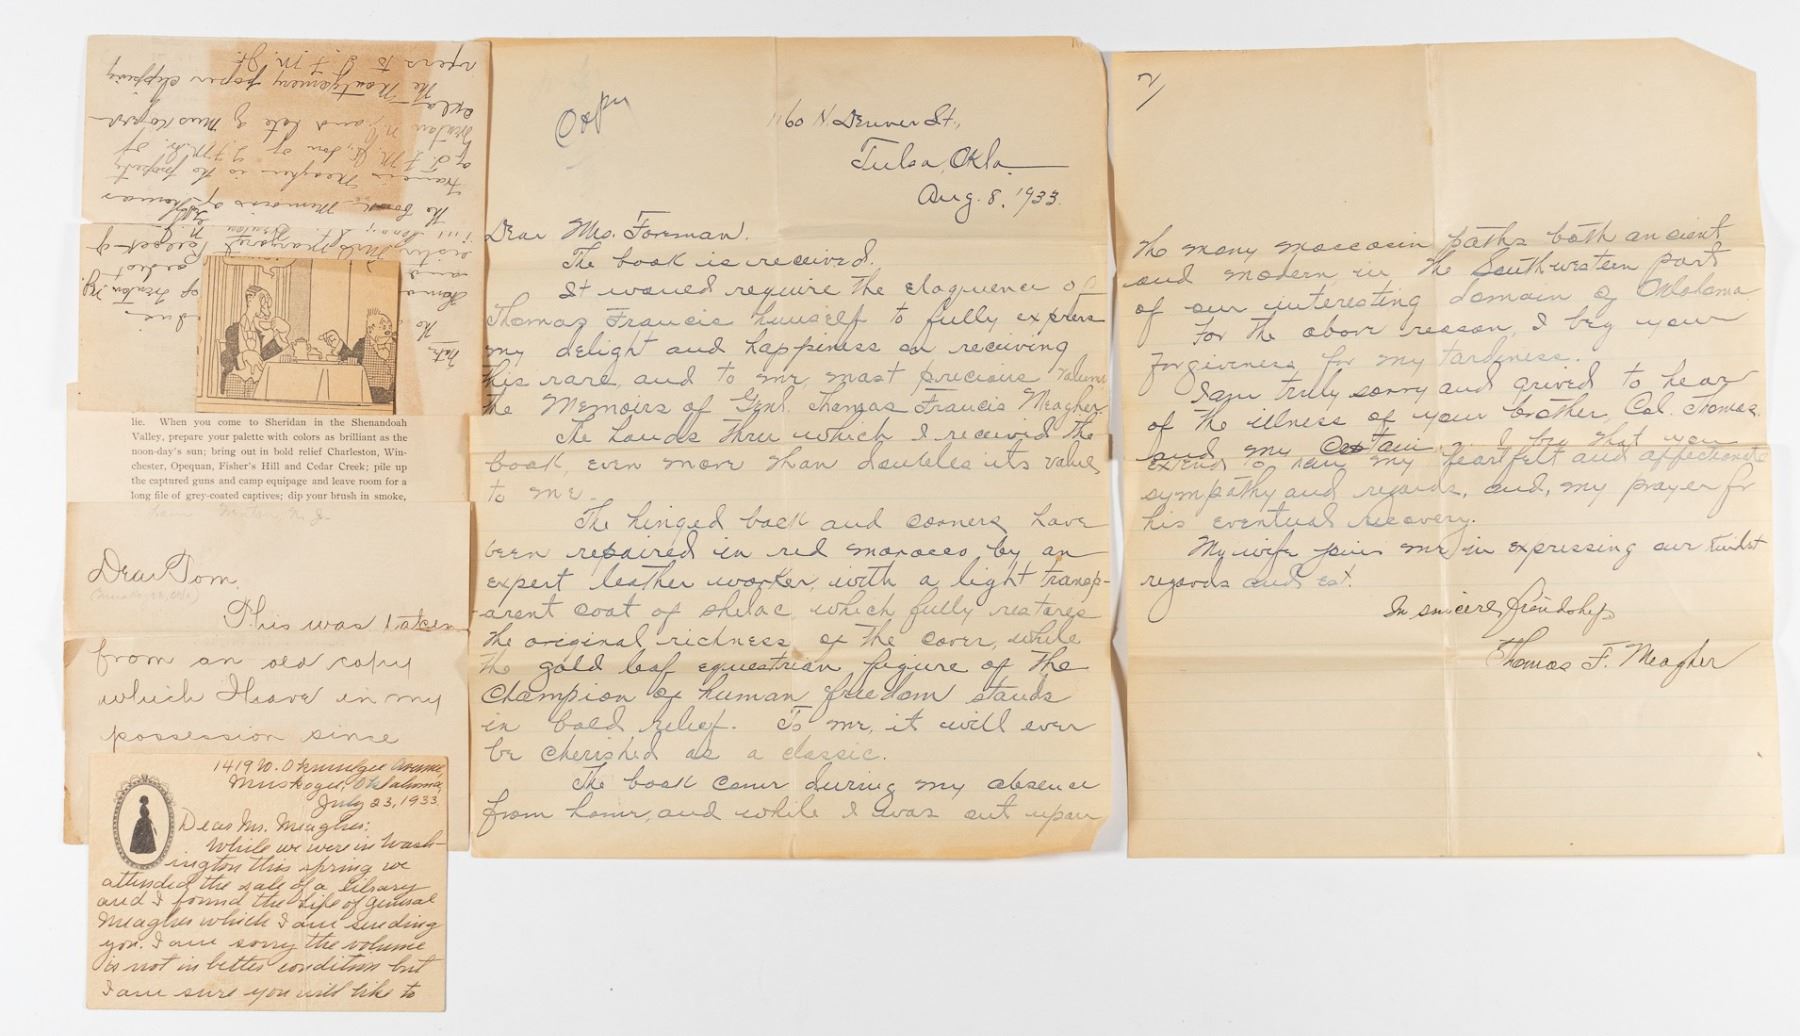 Copy
1160 N. Denver St.,
Tulsa, Okla.
Aug. 8, 1933.
Dear Mrs. Foreman.
The book is received.
It would require the eloquence of
Thomas Francis himself to fully express
my delight and happiness on receiving
this rare, and to me, most precious volume
the Memoirs of Genl. Thomas Francis Meagher.
The hands thru which I received the
book, even more than doubles its value,
to me.
The hinged back and corners have
been repaired in red morocco by an
expert leather worker, with a light transp-
arent coat of shelac which fully restores
the original richness of the cover, while
the gold leaf equestrian figure of the
Champion of human freedom stands
in bold relief. To me, it will ever
be cherished as a classic.
The book came during my absence
from home, and while I was out upon
2/
the many moccasin paths both ancient
and modern in the Southwestern part
of our interesting domain of Oklahoma.
For the above reason, I beg your
forgiveness for my tardiness.
I am truly sorry and grived to hear
of the illness of your brother, Col. Thomas,
and my Captain. I beg that you
extend to him my heartfelt and affectionate
sympathy and regards, and, my prayer for
his eventual recovery.
My wife joins me in expressing our kindest
regards and est.
In sincere friendship
Thomas F. Meagher
The book Memoirs of Thomas
Francis Meagher is the property
of T. F. M. Jr., son of T. F. M. Sr. of
and late of Muskogee
Okla.
The Montgomery paper clipping
refers to T. F. M. Sr.
lie. When you come to Sheridan in the Shenandoah
Valley, prepare your palette with colors as brilliant as the
noon-day's sun; bring out in bold relief Charleston, Win-
chester, Opequan, Fisher's Hill and Cedar Creek; pile up
the captured guns and camp equipage and leave room for a
long file of grey-coated captives; dip your brush in smoke,
Dear Tom,
(Muskogee, Okla)
This was taken
from an old copy
which I have in my
possession since
1419 W. Okmulgee Avenue,
Muskogee, Oklahoma,
July 23, 1933.
Dear Mr. Meagher:
While we were in Wash-
ington this spring we
attended the sale of a library
and I found the Life of General
Meagher which I am sending
you. I am sorry the volume
is not in better condition but
I am sure you will like to